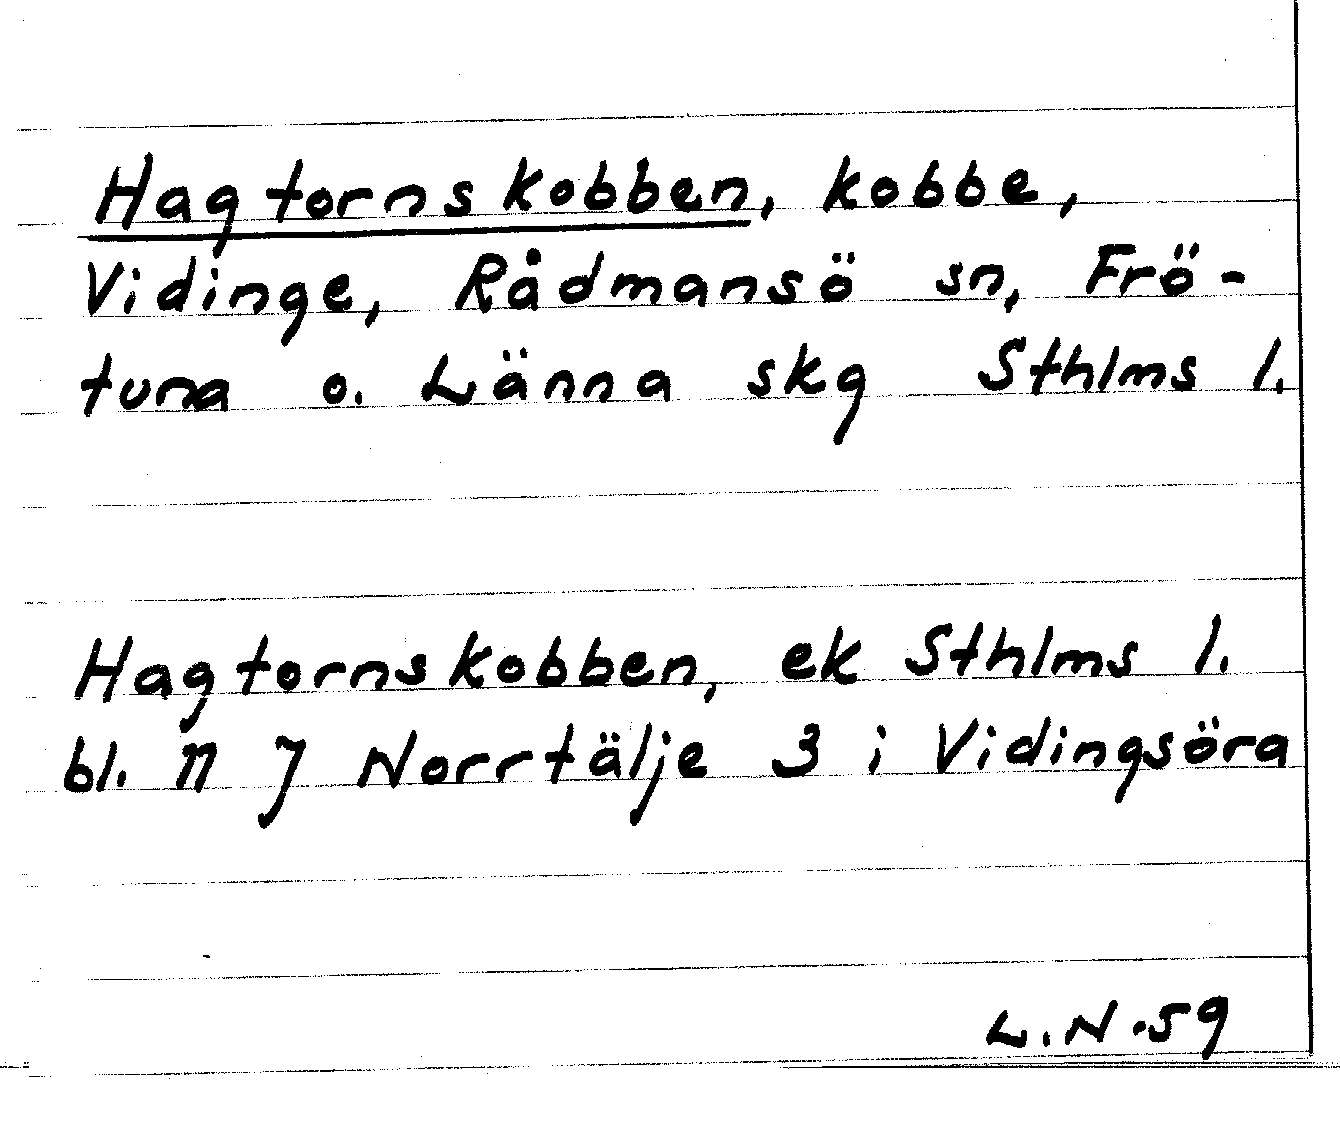 Hagtornskobben, kobbe,
Vidinge, Rådmansö sn, Frö-
tuna o. Länna skg Sthlms l.
Hagtornskobben, ek Sthlms l.
bl. n 7 Norrtälje 3 i Vidingsöra
L.N.59